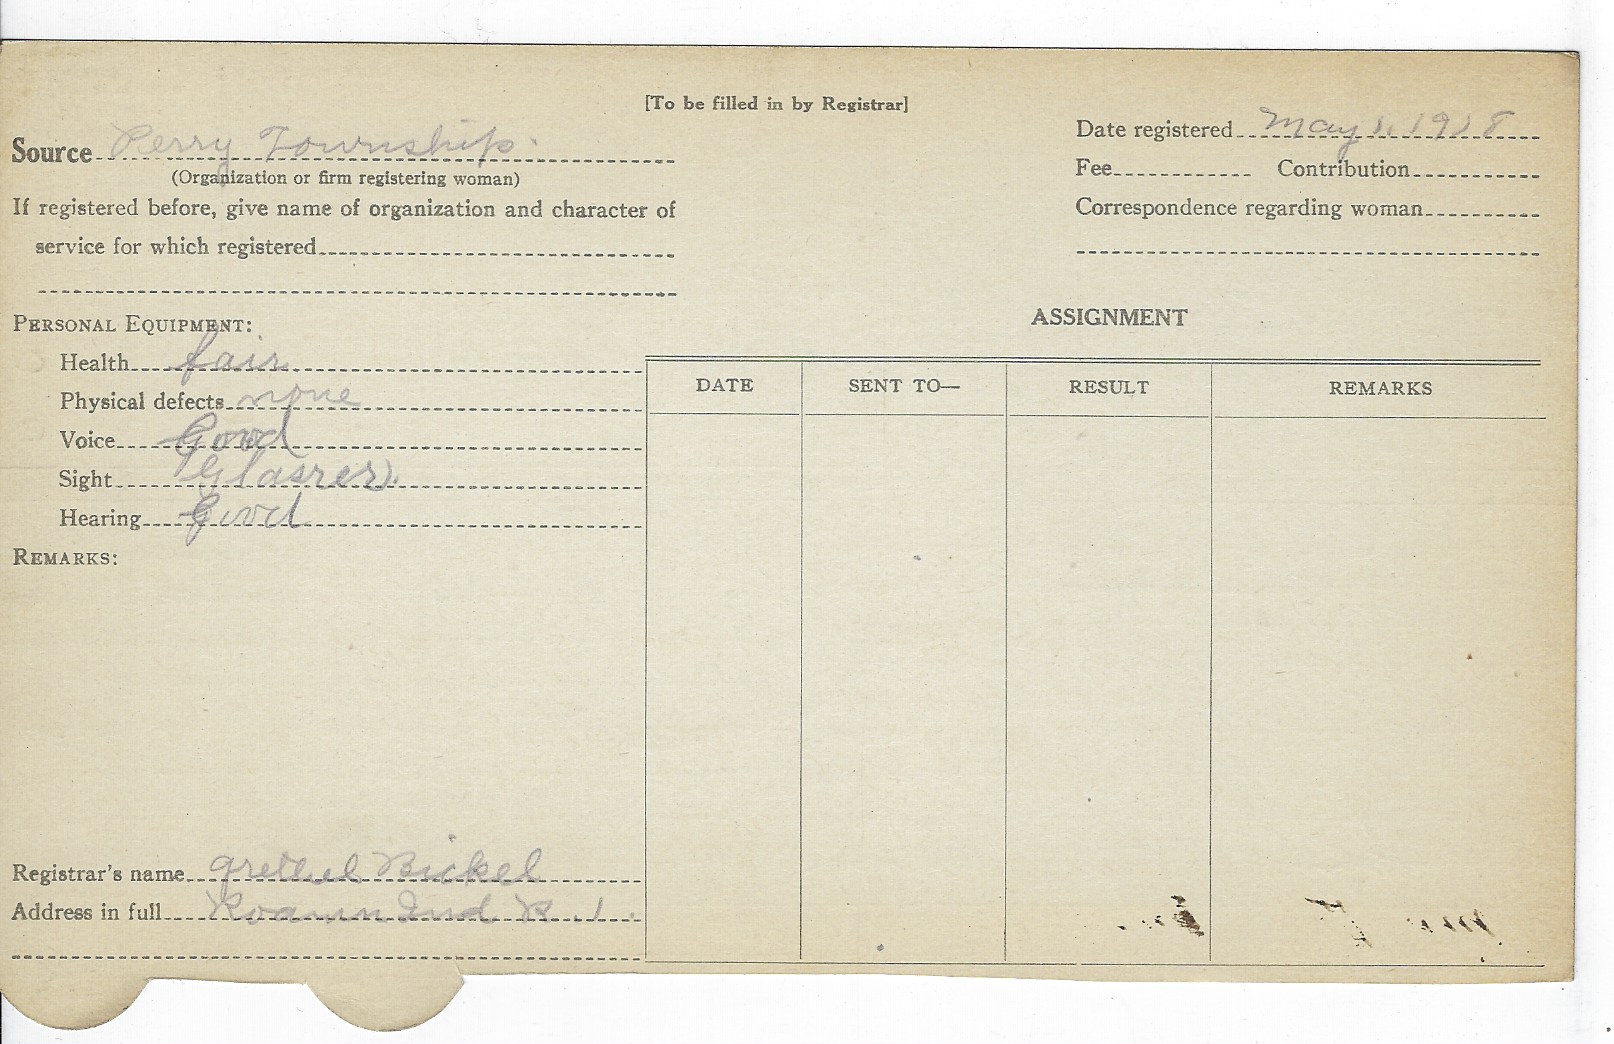 [To be filled in by Registrar]
Source Perry Township.
(Organization or firm registering woman)
If registered before, give name of organization and character of
service for which registered
Date registered May 1, 1918
Fee Contribution
Correspondence regarding woman
PERSONAL EQUIPMENT:
Health fair
Physical defects none
Voice Good
Sight Glasses.
Hearing Good
REMARKS:
ASSIGNMENT
DATE SENT TO— RESULT REMARKS
Registrar's name Grethel Bickel
Address in full Roann Ind R. 1.